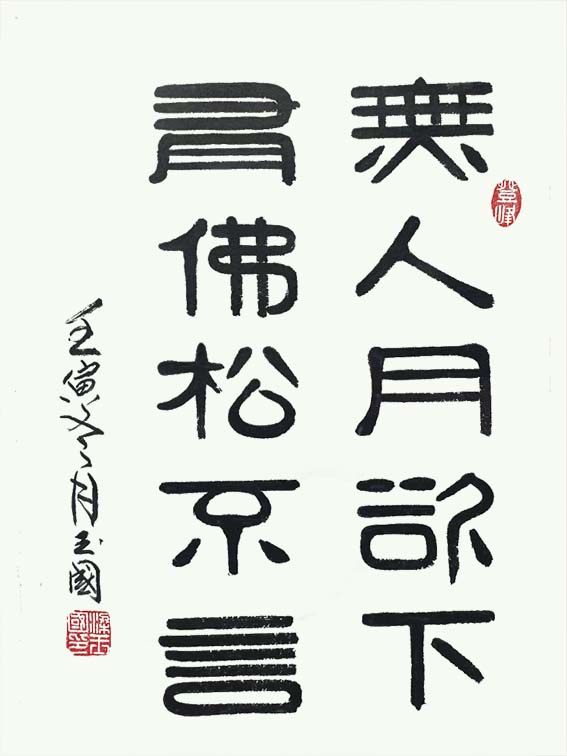 無人月欲下
登峰
有佛松不言
壬寅冬月玉國